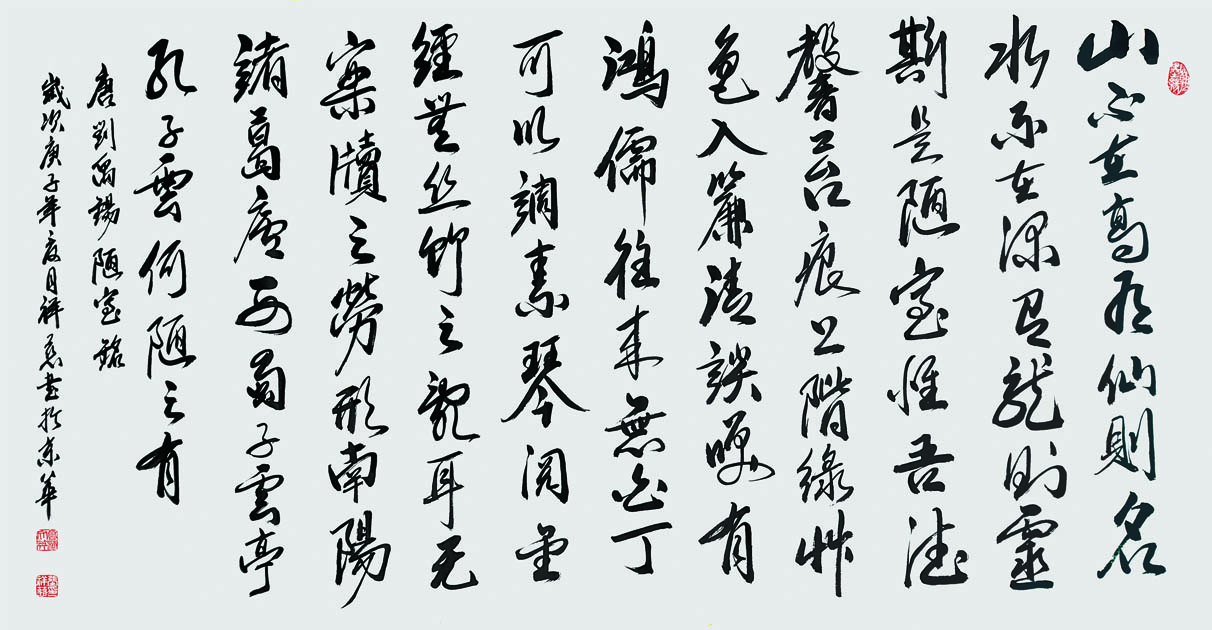 山不在高有仙則名
水不在深有龍則靈
斯是陋室惟吾德
馨苔痕上階綠艸
色入簾清談咲有
鴻儒往來無白丁
可以調素琴閱金
經無絲竹之亂耳无
案牘之勞形南陽
諸葛廬西蜀子雲亭
孔子雲何陋之有
唐劉禹錫陋室銘
歲次庚子年夏月祥書於東華